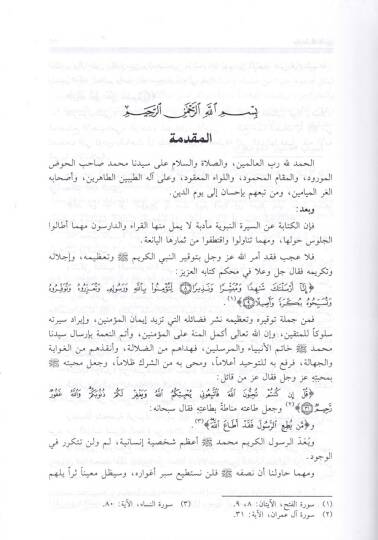 بسم الله الرحمن الرحيم
المقدمة
الحمد لله رب العالمين، والصلاة والسلام على سيدنا محمد صاحب الحوض
المورود، والمقام المحمود، واللواء المعقود، وعلى آله الطيبين الطاهرين، وأصحابه
الغر الميامين، ومن تبعهم بإحسان إلى يوم الدين.
وبعد:
فإن الكتابة عن السيرة النبوية مأدبة لا يمل منها القراء والدارسون مهما أطالوا
الجلوس حولها، ومهما تناولوا واقتطفوا من ثمارها اليانعة.
فلا عجب فقد أمر الله عز وجل بتوقير النبي الكريم ﷺ وتعظيمه، وإجلاله
وتكريمه فقال جل وعلا في محكم كتابه العزيز:
﴿إِنَّا أَرْسَلْنَاكَ شَاهِدًا وَمُبَشِّرًا وَنَذِيرًا ﴿٨﴾ لِتُؤْمِنُوا بِاللَّهِ وَرَسُولِهِ وَتُعَزِّرُوهُ وَتُوَقِّرُوهُ
وَتُسَبِّحُوهُ بُكْرَةً وَأَصِيلًا ﴿٩﴾﴾(١).
فمن جملة توقيره وتعظيمه نشر فضائله التي تزيد إيمان المؤمنين، وإيراد سيرته
سلوكاً للمتقين، وإن الله تعالى أكمل المنة على المؤمنين، وأتم النعمة بإرسال سيدنا
محمد ﷺ خاتم الأنبياء والمرسلين، فهداهم من الضلالة، وأنقذهم من الغواية
والجهالة، فرفع به للتوحيد أعلاماً، ومحى به من الشرك ظلاماً، وجعل محبته ﷺ
بمحبته عز وجل فقال عز من قائل:
﴿قُلْ إِن كُنتُمْ تُحِبُّونَ اللَّهَ فَاتَّبِعُونِي يُحْبِبْكُمُ اللَّهُ وَيَغْفِرْ لَكُمْ ذُنُوبَكُمْ وَاللَّهُ غَفُورٌ
رَّحِيمٌ ﴿٣١﴾﴾(٢) وجعل طاعته مناطة بطاعته فقال سبحانه:
﴿مَّن يُطِعِ الرَّسُولَ فَقَدْ أَطَاعَ اللَّهَ﴾(٣)
ويُعَدّ الرسول الكريم محمد ﷺ أعظم شخصية إنسانية، لم ولن تتكرر في
الوجود.
ومهما حاولنا أن نصفه ﷺ فلن نستطيع سبر أغواره، وسيظل معيناً ثراً يلهم
(١) سورة الفتح، الآيتان: ٨، ٩.
(٢) سورة آل عمران، الآية: ٣١.
(٣) سورة النساء، الآية: ٨٠.